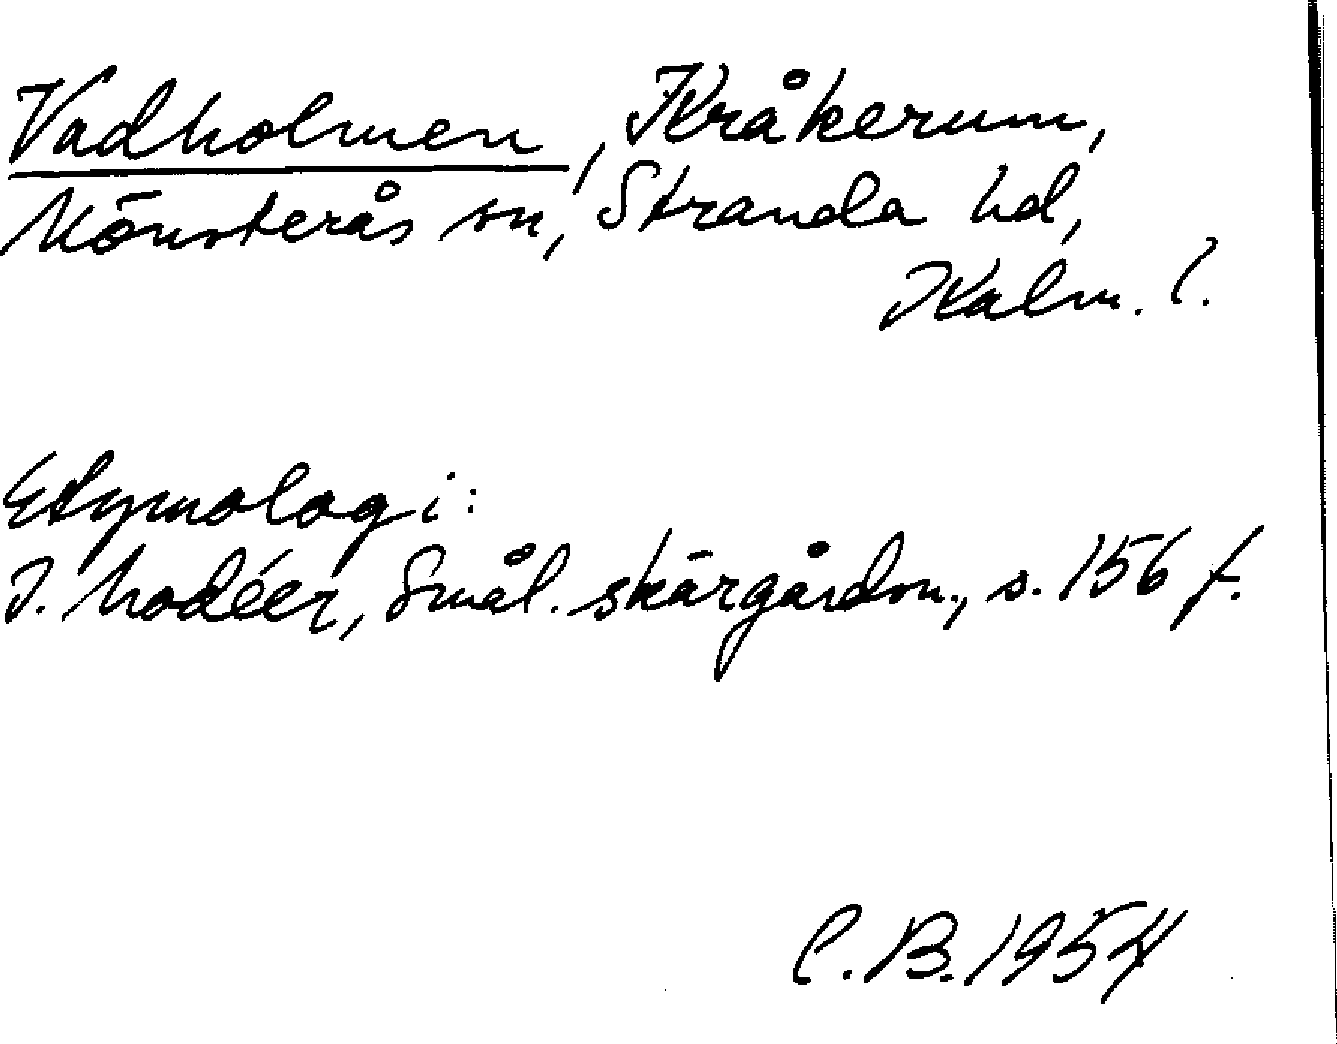 Vadholmen, Kråkerum,
Mönsterås sn, Stranda hd,
Kalm. l.
Etymologi:
I. Modéer, Smål. skärgårdsn., s. 156 f.
C. B. 1954